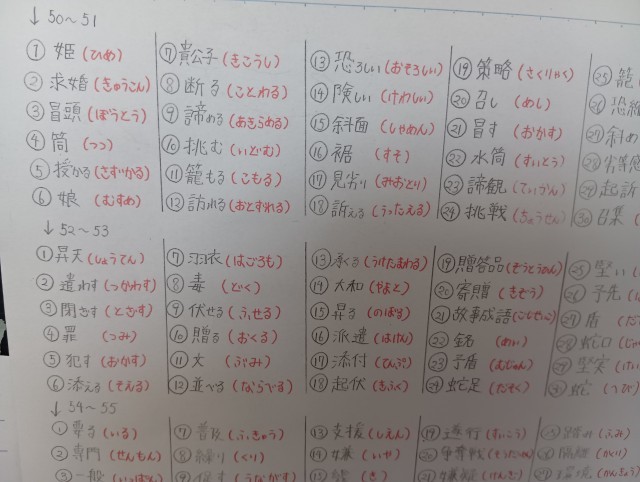 ↓50～51
① 姫 (ひめ)
② 求婚 (きゅうこん)
③ 冒頭 (ぼうとう)
④ 筒 (つつ)
⑤ 授かる (さずかる)
⑥ 娘 (むすめ)
⑦ 貴公子 (きこうし)
⑧ 断る (ことわる)
⑨ 諦める (あきらめる)
⑩ 挑む (いどむ)
⑪ 籠もる (こもる)
⑫ 訪れる (おとずれる)
⑬ 恐ろしい (おそろしい)
⑭ 険しい (けわしい)
⑮ 斜面 (しゃめん)
⑯ 裾 (すそ)
⑰ 見劣り (みおとり)
⑱ 訴える (うったえる)
⑲ 策略 (さくりゃく)
⑳ 召し (めし)
㉑ 冒す (おかす)
㉒ 水筒 (すいとう)
㉓ 諦観 (ていかん)
㉔ 挑戦 (ちょうせん)
㉕ 籠
㉖ 恐
㉗ 斜め
㉘ 劣等
㉙ 起訴
㉚ 召集
↓52～53
① 昇天 (しょうてん)
② 遣わす (つかわす)
③ 閉ざす (とざす)
④ 罪 (つみ)
⑤ 犯す (おかす)
⑥ 添える (そえる)
⑦ 羽衣 (はごろも)
⑧ 毒 (どく)
⑨ 伏せる (ふせる)
⑩ 贈る (おくる)
⑪ 文 (ふみ)
⑫ 並べる (ならべる)
⑬ 承る (うけたまわる)
⑭ 大和 (やまと)
⑮ 昇る (のぼる)
⑯ 派遣 (はけん)
⑰ 添付 (てんぷ)
⑱ 起伏 (きふく)
⑲ 贈答品 (ぞうとうひん)
⑳ 寄贈 (きぞう)
㉑ 故事成語 (こじせいご)
㉒ 銘 (めい)
㉓ 矛盾 (むじゅん)
㉔ 蛇足 (だそく)
㉕ 堅い
㉖ 矛先
㉗ 盾
㉘ 蛇口
㉙ 堅実
㉚ 蛇 (へび)
↓54～55
② 専門 (せんもん)
③ 一般 (いっぱん)
⑦ 普及 (ふきゅう)
⑧ 繰り (くり)
⑨ 促す (うながす)
⑬ 支援 (しえん)
⑭ 嫌 (いや)
⑲ 遂行 (すいこう)
⑳ 争奪戦